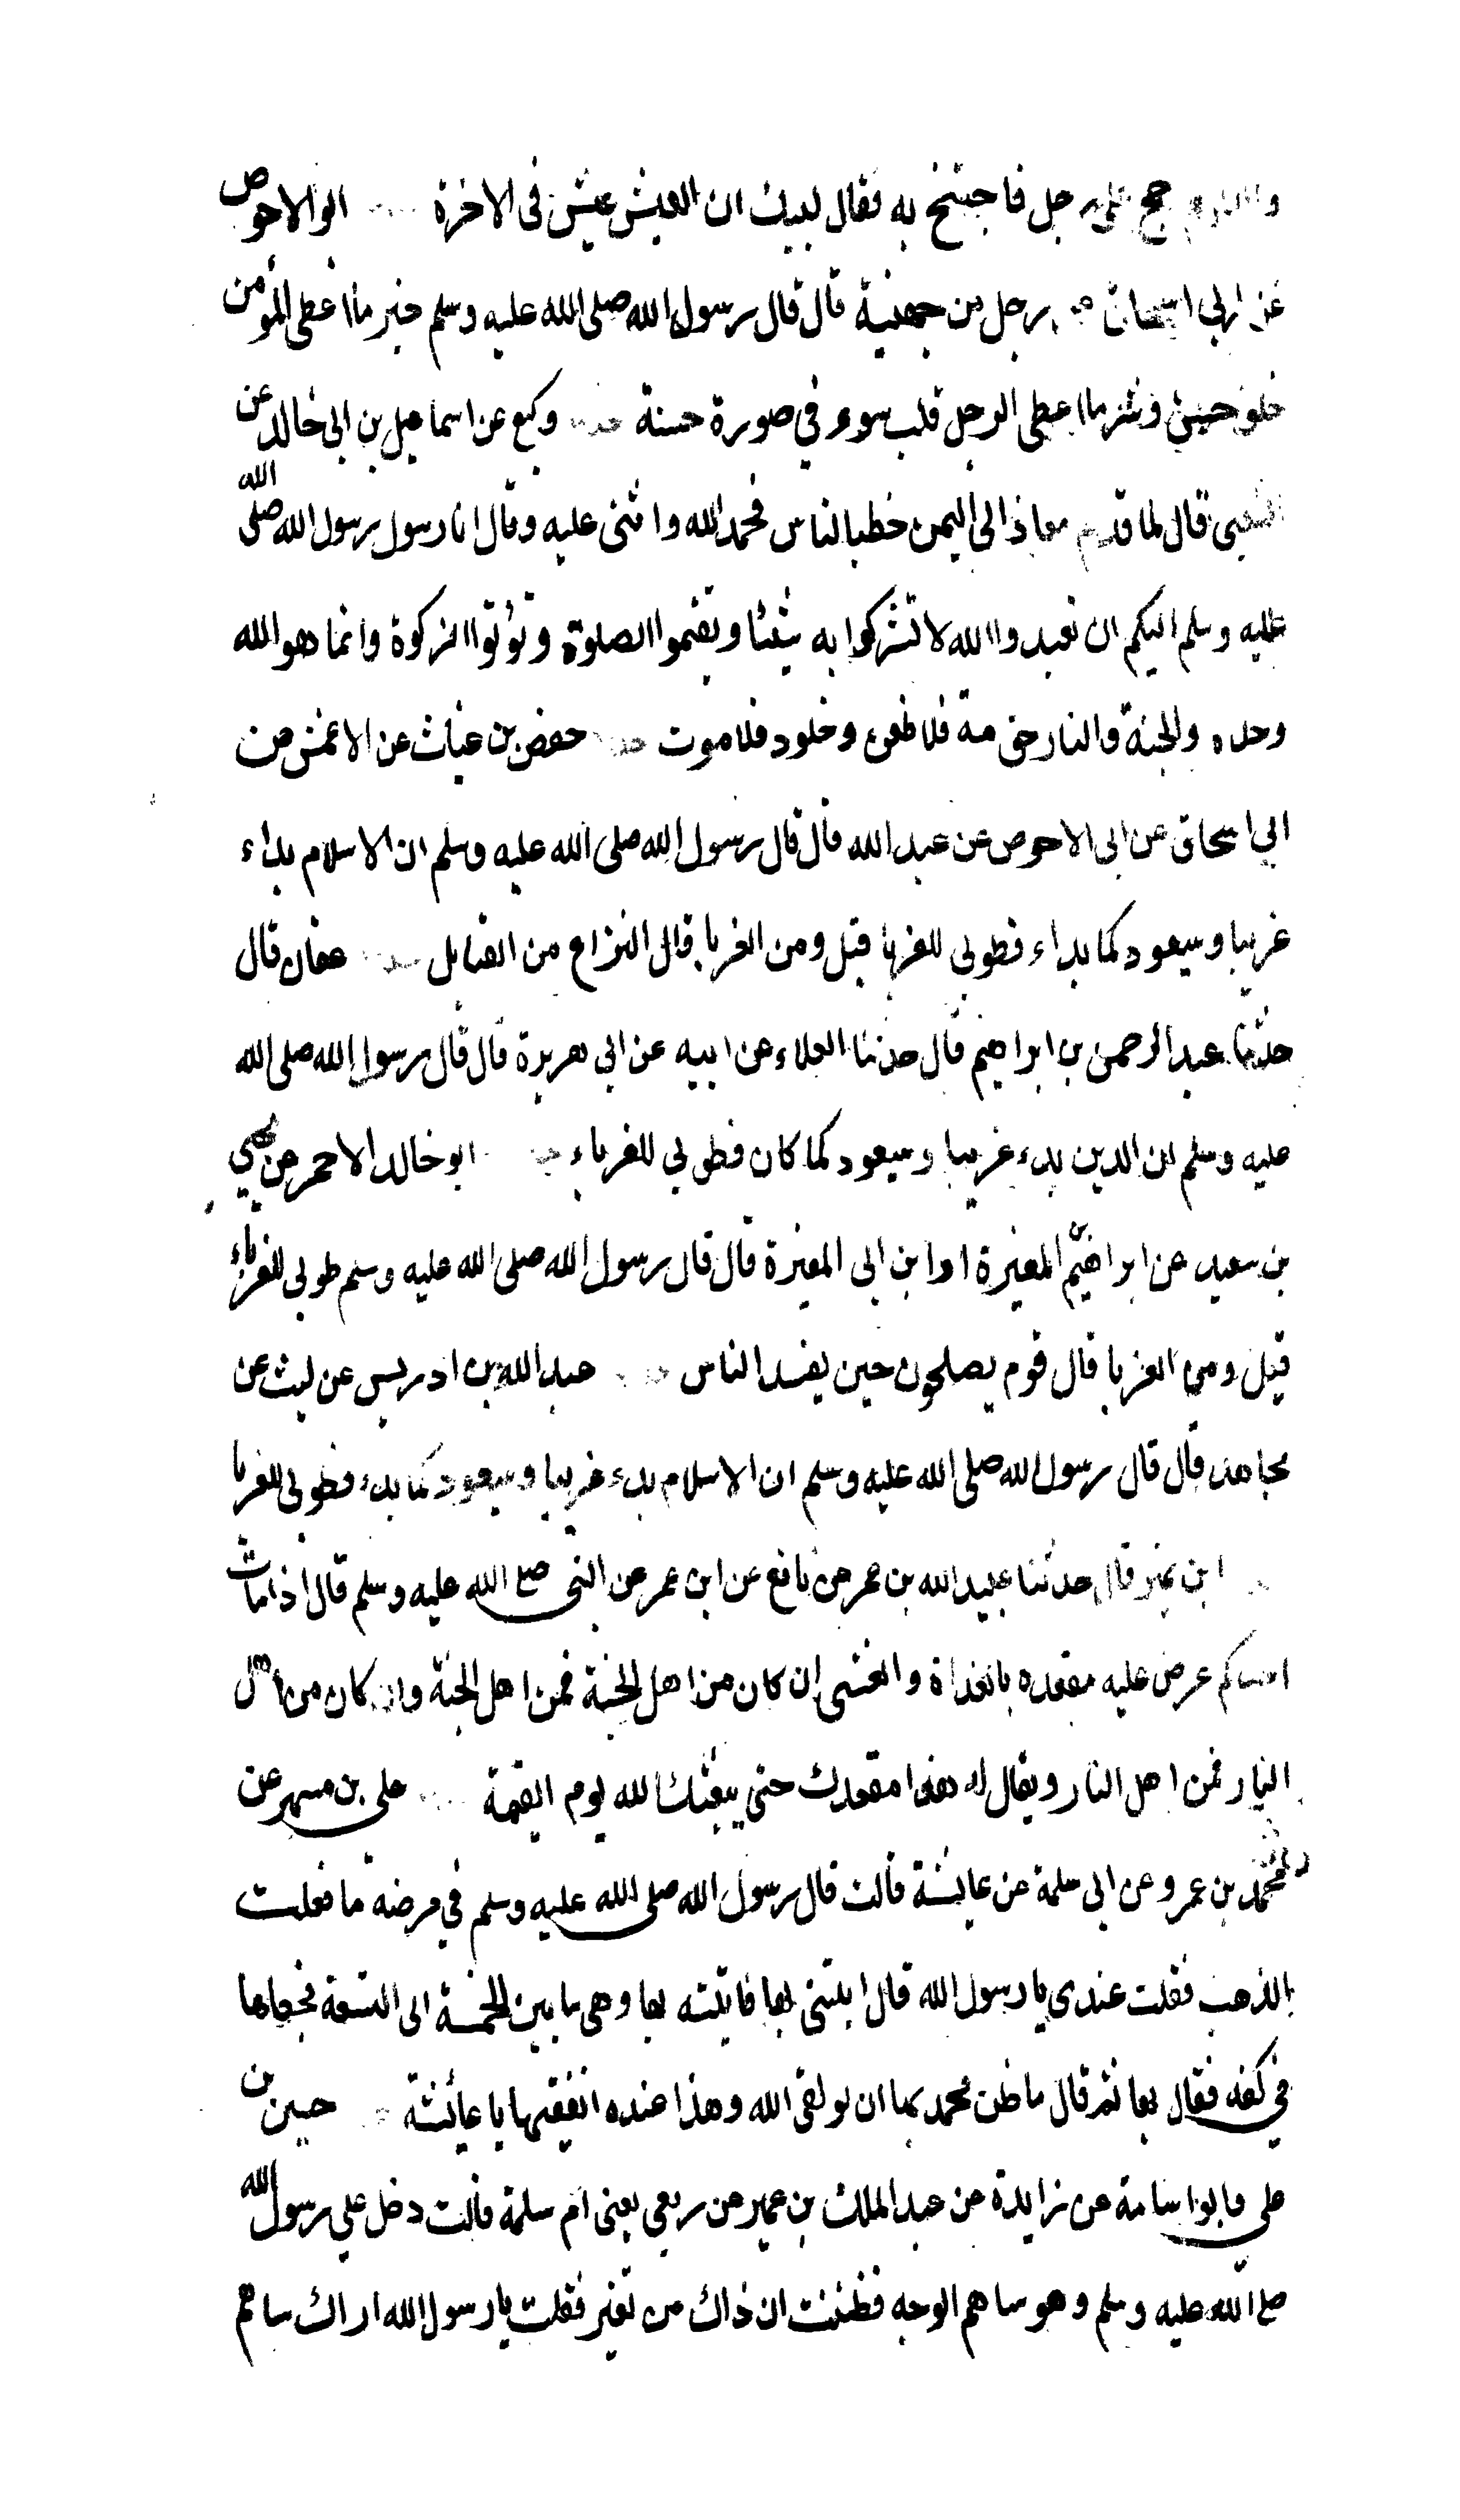 حج على رجل فاجتنح به فقال لبيك ان العيش عيش فى الاخرة ابو الاحوص
عن ابى اسحاق عن رجل من جهنية قال قال رسول الله صلى الله عليه وسلم خير ما اعطى المؤمن
خلق حسن وشر ما اعطى الرجل قلب سوء في صورة حسنة حدثنا وكيع عن اسماعيل بن ابى خالد عن
الشعبى قال لما قدم معاذ الى اليمن خطب الناس فحمد الله واثنى عليه وقال انا رسول رسول الله صلى الله
عليه وسلم اليكم ان تعبدوا الله لا تشركوا به شيئا وتقيموا الصلوة وتؤتوا الزكوة وانما هو الله
وحده والجنة والنار حق مة فلا ظعن وخلود فلا موت حدثنا حفص بن غياث عن الاعمش عن
ابي اسحاق عن ابى الاحوص عن عبد الله قال قال رسول الله صلى الله عليه وسلم ان الاسلام بداء
غريبا وسيعود كما بداء فطوبى للغربا قيل ومن الغربا قال النزاع من القبايل عفان قال
حدثنا عبد الرحمن بن ابراهيم قال حدثنا العلاء عن ابيه عن ابى هريرة قال قال رسول الله صلى الله
عليه وسلم ان الدين بدء غريبا وسيعود كما كان فطوبى للغرباء ابو خالد الاحمر عن يحيي
بن سعيد عن ابراهيم المغيرة او ابن ابى المغيرة قال قال رسول الله صلى الله عليه وسلم طوبى للغرباء
قيل ومن الغربا قال قوم يصلحون حين يفسد الناس حدثنا عبد الله بن ادريس عن ليث عن
مجاهد قال قال رسول الله صلى الله عليه وسلم ان الاسلام بدء غريبا وسيعود كما بدء فطوبى للغربا
ابن نمير قال حدثنا عبيد الله بن عمر عن نافع عن ابن عمر عن النبي صلى الله عليه وسلم قال اذا مات
احدكم عرض عليه مقعده بالغداة والعشى ان كان من اهل الجنة فمن اهل الجنة وان كان من اهل
النار فمن اهل النار ويقال له هذا مقعدك حتى يبعثك الله يوم القيمة على بن مسهر عن
محمد بن عمرو عن ابى سلمة عن عايشة قالت قال رسول الله صلى الله عليه وسلم في مرضه ما فعلت
بالذهب فقلت عندي يا رسول الله قال ايتينى بها فاتيته بها وهى ما بين الخمسة الى التسعة فجعلها
في كفه فقال بها ثم قال ما ظن محمد بها ان لو لقى الله وهذا عنده انفقيها يا عائشة حسين بن
على وابو اسامة عن زايدة عن عبد الملك بن عمير عن ربعى يعنى ام سلمة قالت دخل علي رسول الله
صلى الله عليه وسلم وهو ساهم الوجه فظننت ان ذاك من تغير فقلت يا رسول الله اراك ساهم